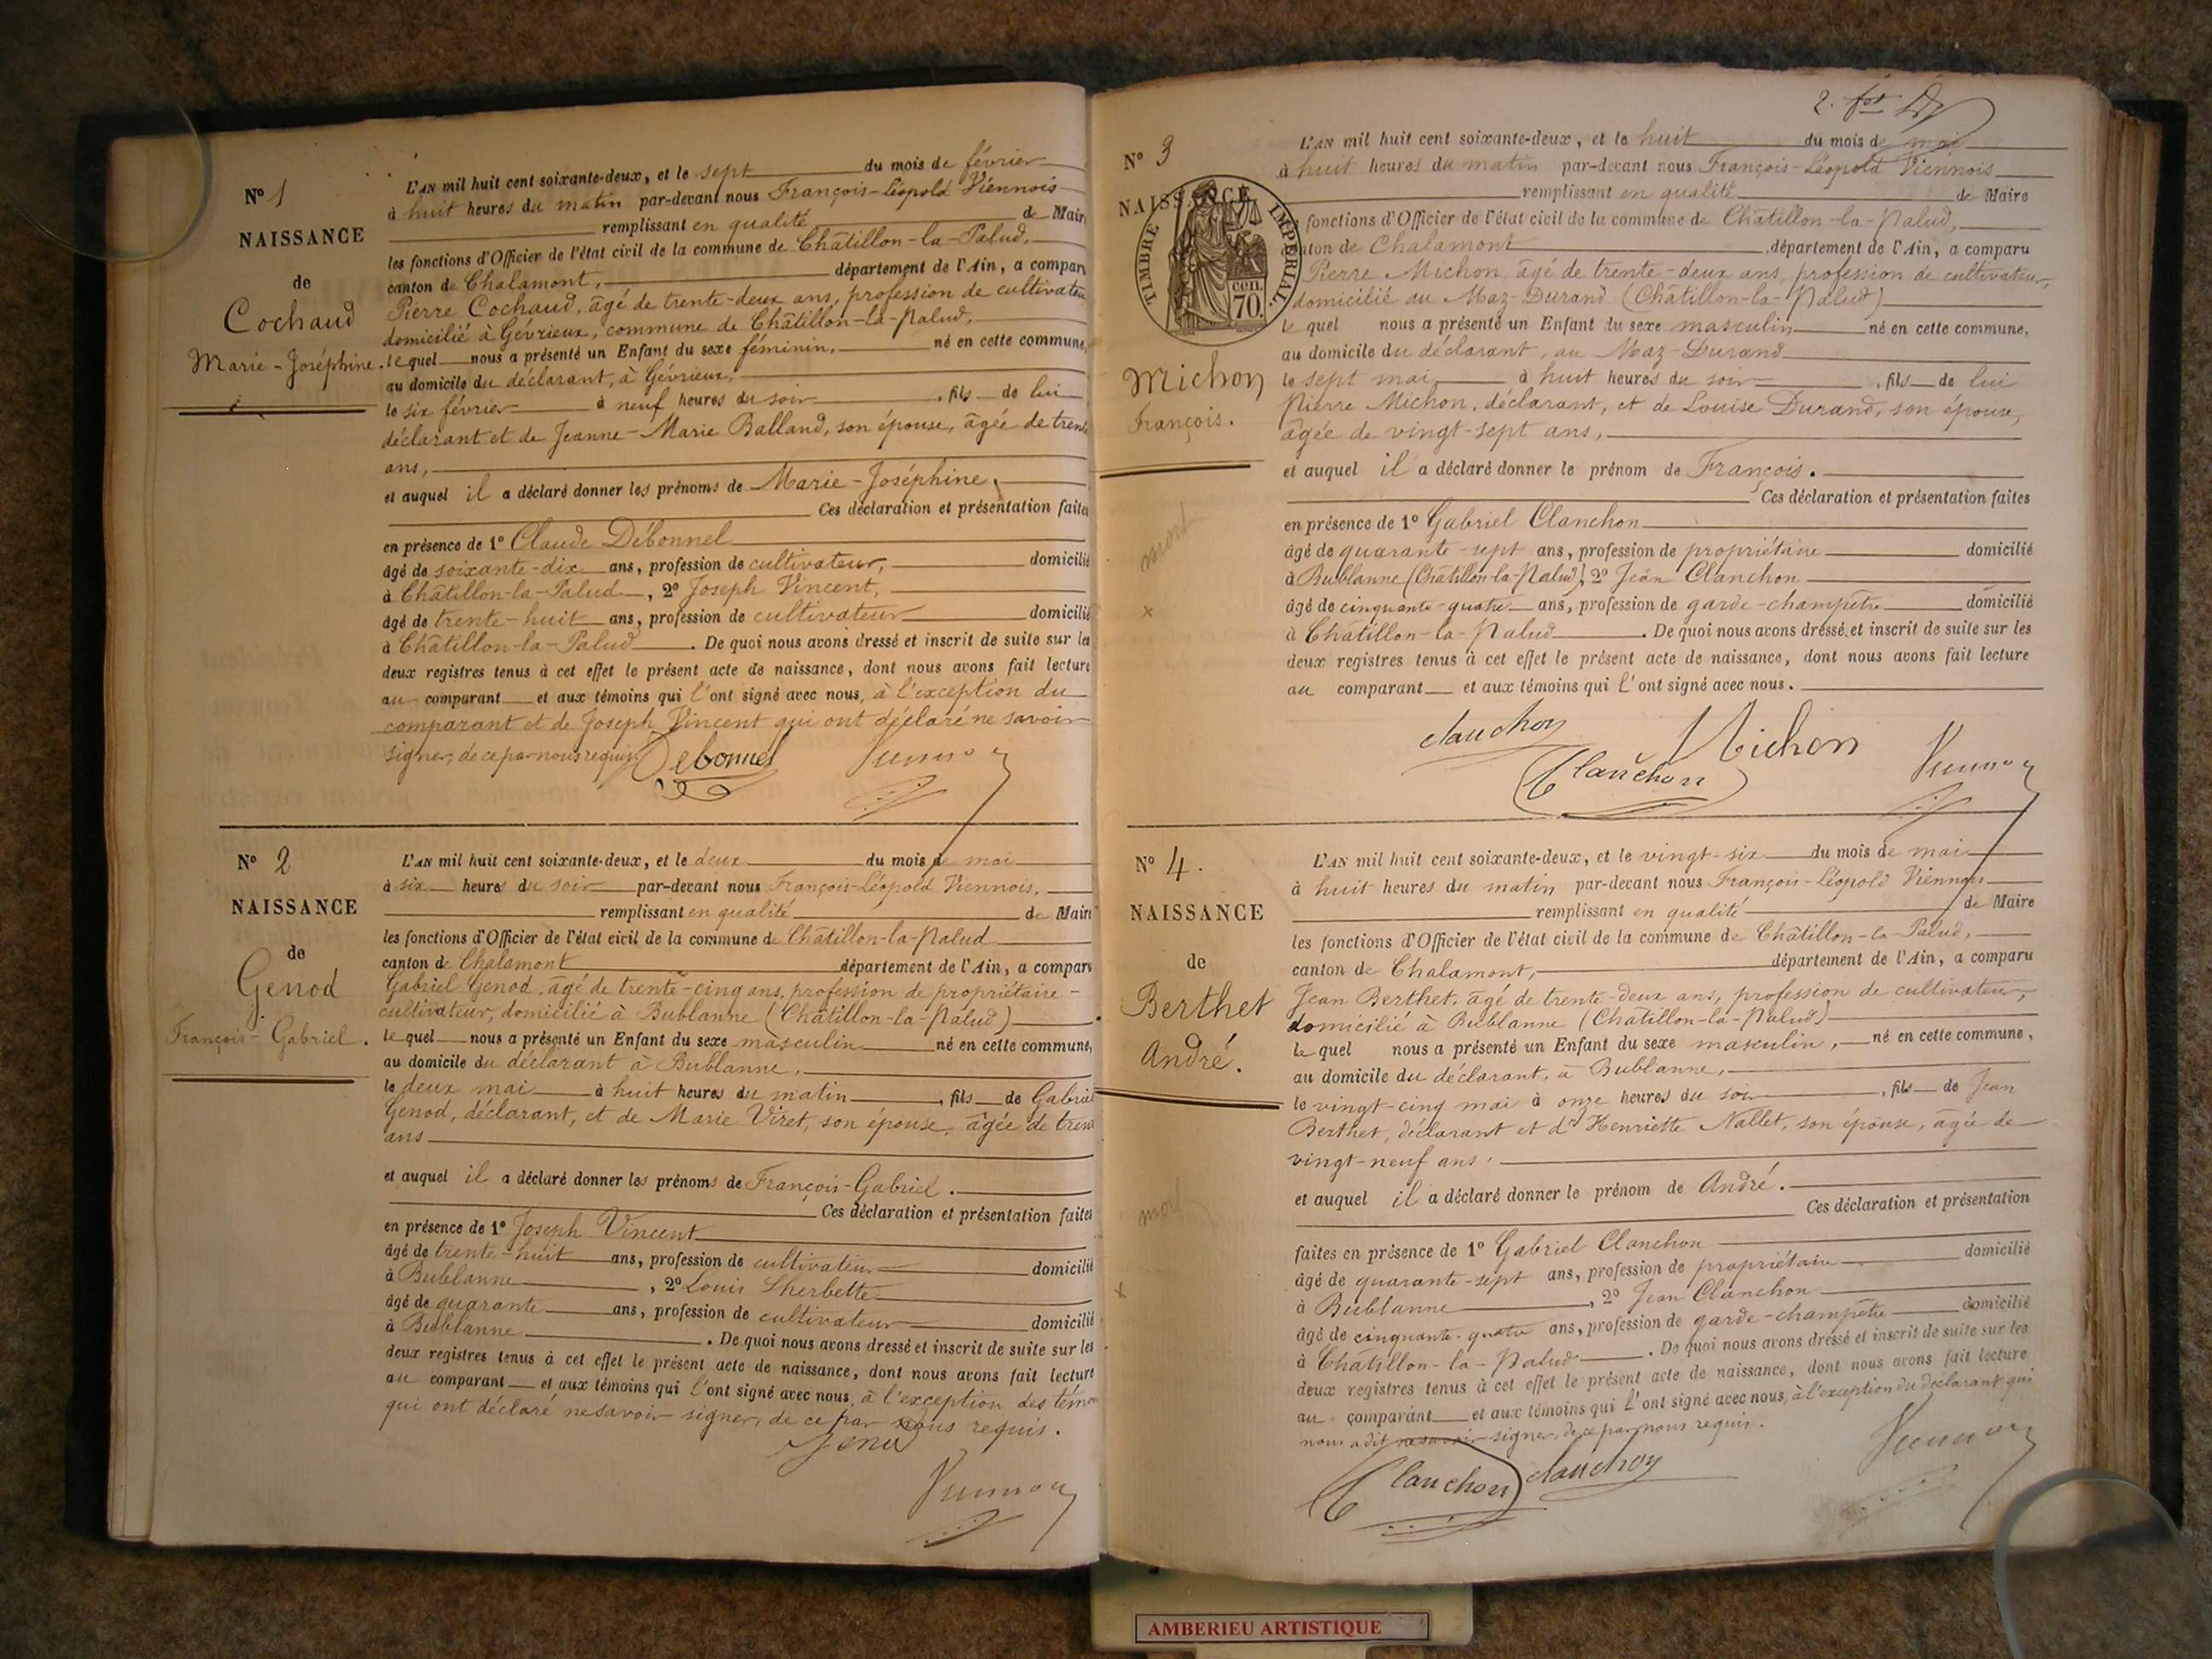 N° 1
NAISSANCE
de
Cochaud
Marie-Joséphine.
L'AN mil huit cent soixante-deux, et le sept du mois de février
à huit heures du matin par-devant nous François-Léopold Viennois
remplissant en qualité de Maire
les fonctions d'Officier de l'état civil de la commune de Châtillon-la-Palud,
canton de Chalamont, département de l'Ain, a comparu
Pierre Cochaud, âgé de trente-deux ans, profession de cultivateur
domicilié à Gévrieux, commune de Châtillon-la-Palud,
lequel nous a présenté un Enfant du sexe féminin, né en cette commune,
au domicile du déclarant, à Gévrieux,
le six février à neuf heures du soir, fils de lui
déclarant et de Jeanne-Marie Balland, son épouse, âgée de trente
ans,
et auquel il a déclaré donner les prénoms de Marie-Joséphine.
Ces déclaration et présentation faites
en présence de 1° Claude Débonnel
âgé de soixante-dix ans, profession de cultivateur, domicilié
à Châtillon-la-Palud, 2° Joseph Vincent,
âgé de trente-huit ans, profession de cultivateur domicilié
à Châtillon-la-Palud. De quoi nous avons dressé et inscrit de suite sur les
deux registres tenus à cet effet le présent acte de naissance, dont nous avons fait lecture
au comparant et aux témoins qui l'ont signé avec nous, à l'exception du
comparant et de Joseph Vincent qui ont déclaré ne savoir
signer, de ce par nous requis.
Debonnel
N° 2
NAISSANCE
de
Genod
François-Gabriel.
L'AN mil huit cent soixante-deux, et le deux du mois de mai
à six heures du soir par-devant nous François-Léopold Viennois,
remplissant en qualité de Maire
les fonctions d'Officier de l'état civil de la commune de Châtillon-la-Palud
canton de Chalamont département de l'Ain, a comparu
Gabriel Genod, âgé de trente-cinq ans, profession de propriétaire-
cultivateur, domicilié à Bublanne (Châtillon-la-Palud)
lequel nous a présenté un Enfant du sexe masculin né en cette commune,
au domicile du déclarant à Bublanne,
le deux mai à huit heures du matin, fils de Gabriel
Genod, déclarant, et de Marie Viret, son épouse, âgée de trente
ans
et auquel il a déclaré donner les prénoms de François-Gabriel.
Ces déclaration et présentation faites
en présence de 1° Joseph Vincent
âgé de trente-huit ans, profession de cultivateur domicilié
à Bublanne, 2° Louis Lherbette
âgé de quarante ans, profession de cultivateur domicilié
à Bublanne. De quoi nous avons dressé et inscrit de suite sur les
deux registres tenus à cet effet le présent acte de naissance, dont nous avons fait lecture
au comparant et aux témoins qui l'ont signé avec nous, à l'exception des témoins
qui ont déclaré ne savoir signer, de ce par nous requis.
2.
N° 3
NAISSANCE
TIMBRE IMPÉRIAL
70. cen.
Michon
François.
mort
x
L'AN mil huit cent soixante-deux, et le huit du mois de mai
à huit heures du matin par-devant nous François-Léopold Viennois
remplissant en qualité de Maire
fonctions d'Officier de l'état civil de la commune de Châtillon-la-Palud,
canton de Chalamont département de l'Ain, a comparu
Pierre Michon, âgé de trente-deux ans, profession de cultivateur,
domicilié au Maz-Durand (Châtillon-la-Palud)
lequel nous a présenté un Enfant du sexe masculin né en cette commune,
au domicile du déclarant, au Maz-Durand
le sept mai, à huit heures du soir, fils de lui
Pierre Michon, déclarant, et de Louise Durand, son épouse,
âgée de vingt-sept ans,
et auquel il a déclaré donner le prénom de François.
Ces déclaration et présentation faites
en présence de 1° Gabriel Clanchon
âgé de quarante-sept ans, profession de propriétaire domicilié
à Bublanne (Châtillon-la-Palud), 2° Jean Clanchon
âgé de cinquante-quatre ans, profession de garde-champêtre domicilié
à Châtillon-la-Palud. De quoi nous avons dressé et inscrit de suite sur les
deux registres tenus à cet effet le présent acte de naissance, dont nous avons fait lecture
au comparant et aux témoins qui l'ont signé avec nous.
clanchon Michon
Clanchon
N° 4.
NAISSANCE
de
Berthet
André.
mort
x
L'AN mil huit cent soixante-deux, et le vingt-six du mois de mai
à huit heures du matin par-devant nous François-Léopold Viennois
remplissant en qualité de Maire
les fonctions d'Officier de l'état civil de la commune de Châtillon-la-Palud,
canton de Chalamont, département de l'Ain, a comparu
Jean Berthet, âgé de trente-deux ans, profession de cultivateur,
domicilié à Bublanne (Châtillon-la-Palud)
lequel nous a présenté un Enfant du sexe masculin, né en cette commune,
au domicile du déclarant, à Bublanne,
le vingt-cinq mai à onze heures du soir, fils de Jean
Berthet, déclarant et d'Henriette Nallet, son épouse, âgée de
vingt-neuf ans.
et auquel il a déclaré donner le prénom de André.
Ces déclaration et présentation
faites en présence de 1° Gabriel Clanchon
âgé de quarante-sept ans, profession de propriétaire domicilié
à Bublanne, 2° Jean Clanchon
âgé de cinquante-quatre ans, profession de garde-champêtre domicilié
à Châtillon-la-Palud. De quoi nous avons dressé et inscrit de suite sur les
deux registres tenus à cet effet le présent acte de naissance, dont nous avons fait lecture
au comparant et aux témoins qui l'ont signé avec nous, à l'exception du déclarant qui
nous a dit ne savoir signer, de ce par nous requis.
Clanchon clanchon
AMBERIEU ARTISTIQUE